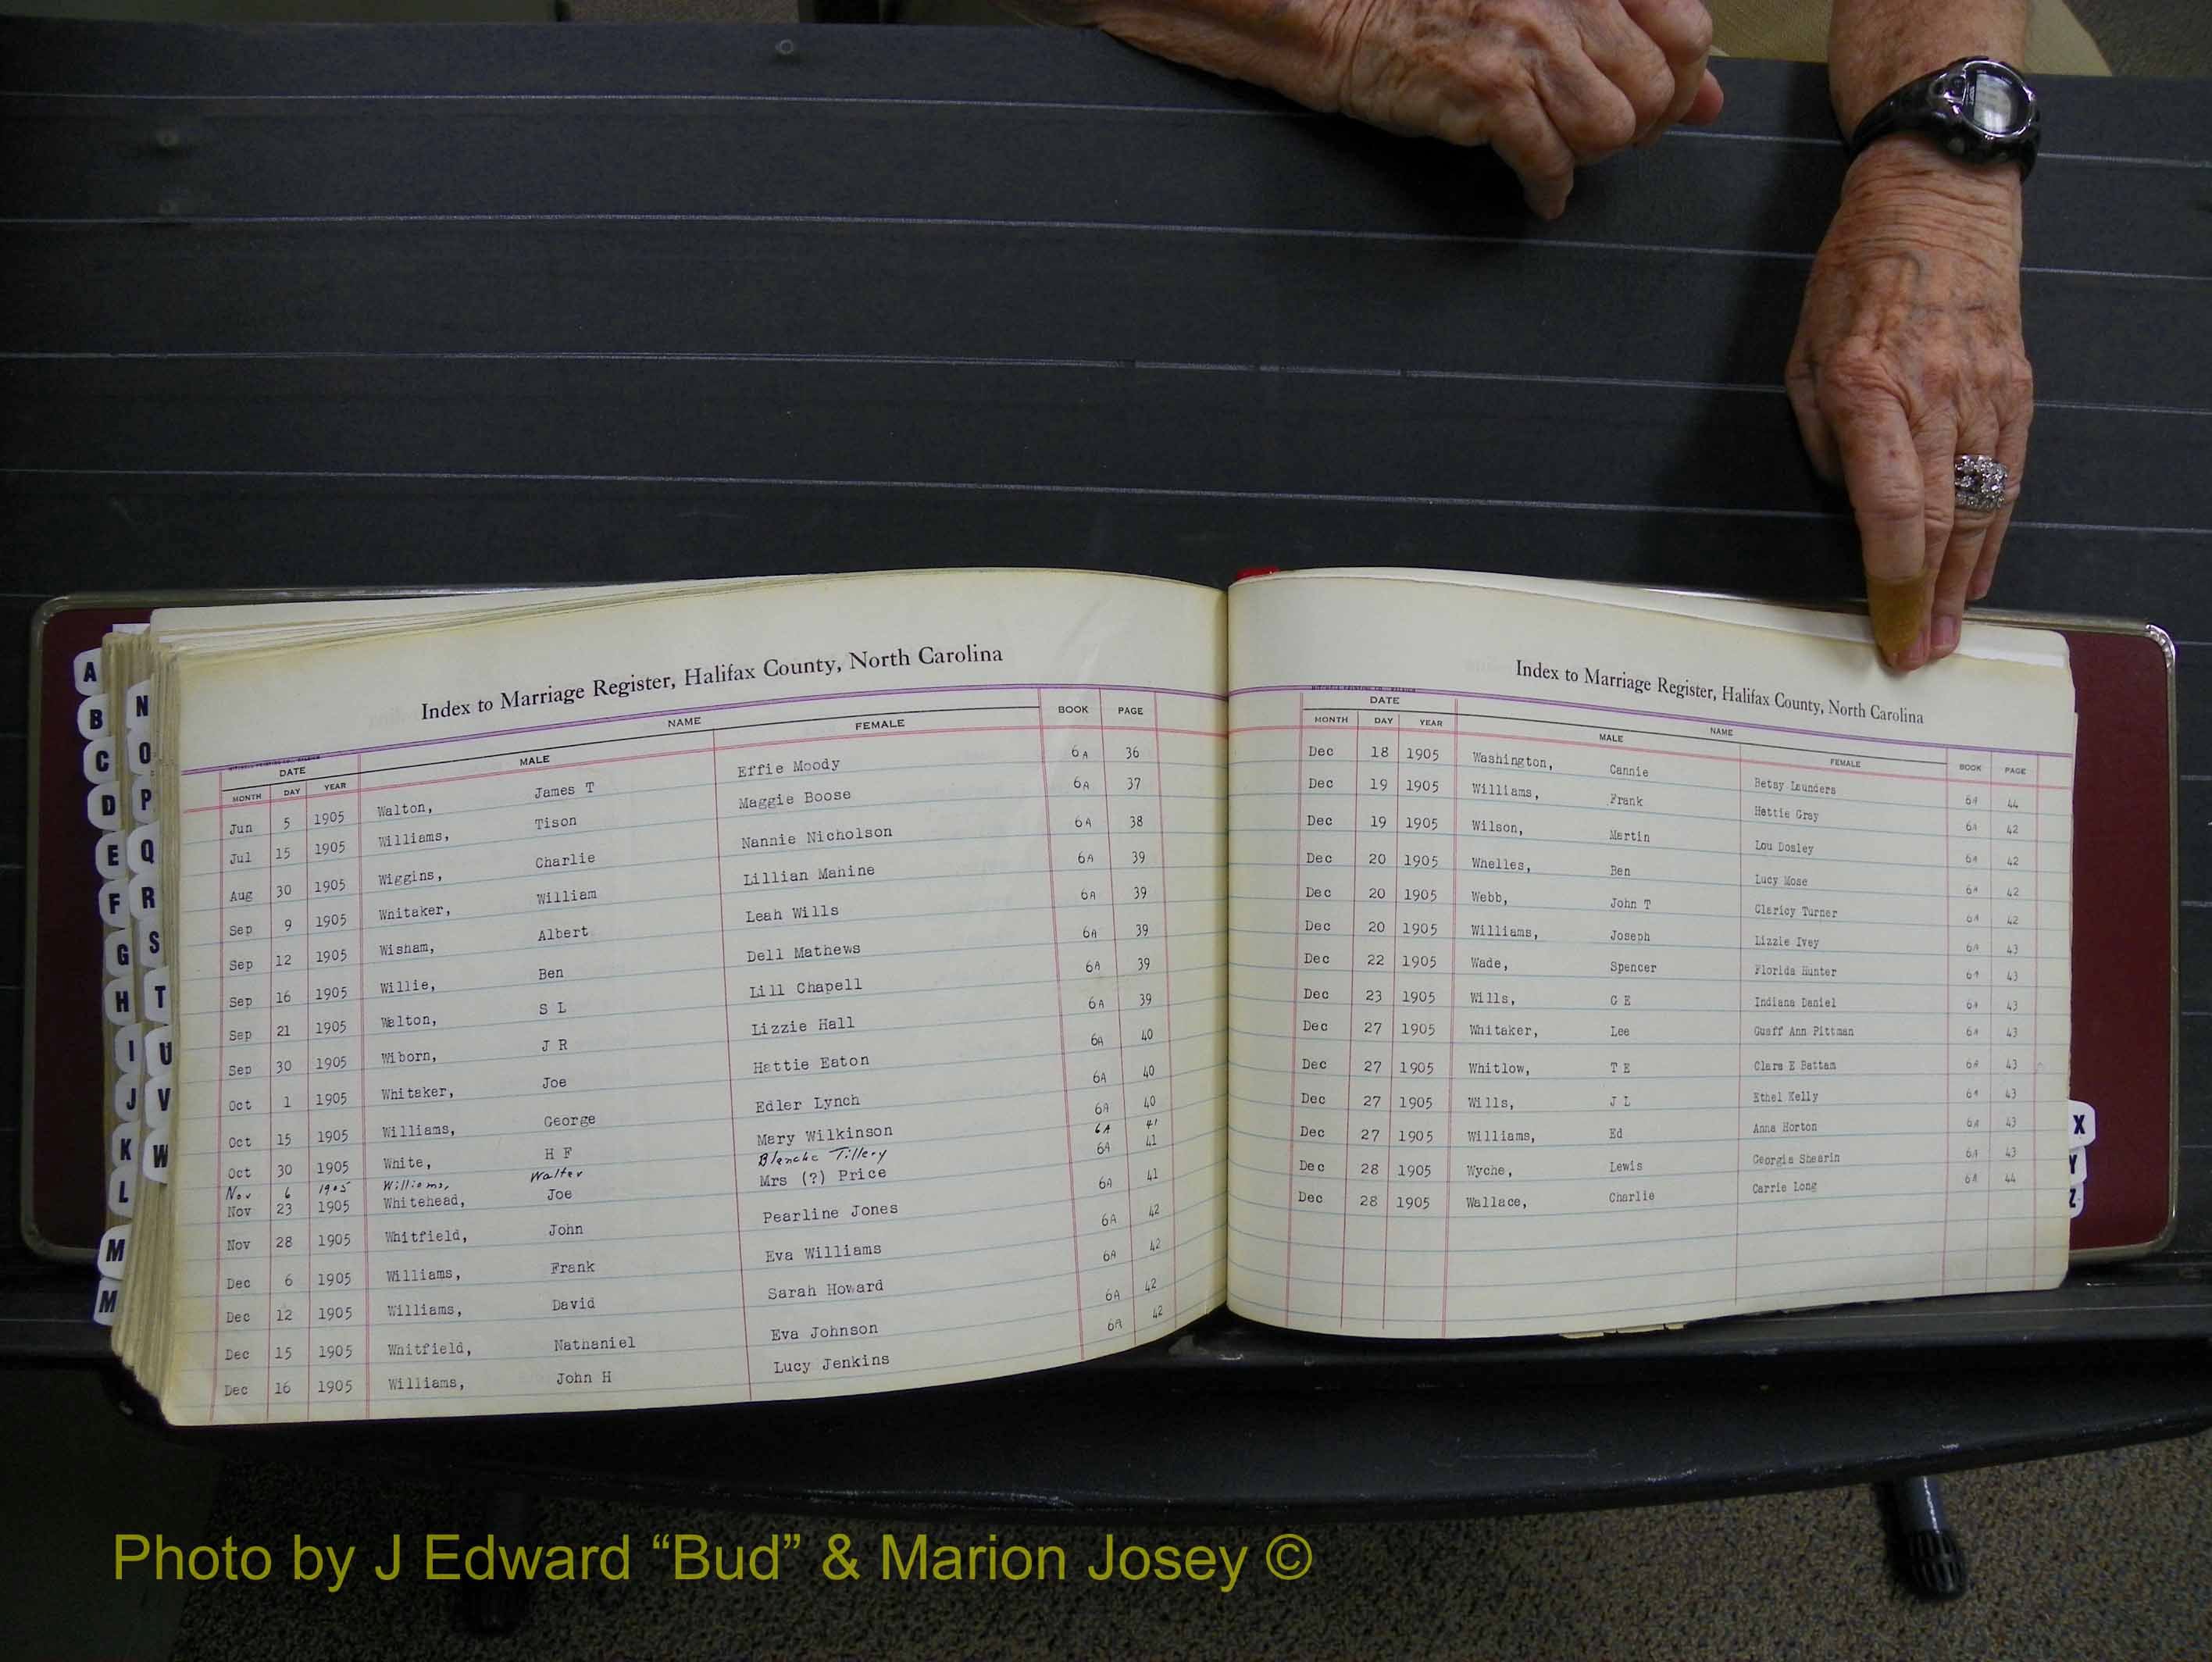 Index to Marriage Register, Halifax County, North Carolina
DATE NAME BOOK PAGE
MONTH DAY YEAR MALE FEMALE
Jun 5 1905 Walton, James T Effie Moody 6A 36
Jul 15 1905 Williams, Tison Maggie Boose 6A 37
Aug 30 1905 Wiggins, Charlie Nannie Nicholson 6A 38
Sep 9 1905 Whitaker, William Lillian Manine 6A 39
Sep 12 1905 Wisham, Albert Leah Wills 6A 39
Sep 16 1905 Willie, Ben Dell Mathews 6A 39
Sep 21 1905 Walton, S L Lill Chapell 6A 39
Sep 30 1905 Wiborn, J R Lizzie Hall 6A 39
Oct 1 1905 Whitaker, Joe Hattie Eaton 6A 40
Oct 15 1905 Williams, George Edler Lynch 6A 40
Oct 30 1905 White, H F Mary Wilkinson 6A 40
Nov 6 1905 Williams, Walter Blanche Tillery 6A 41
Nov 23 1905 Whitehead, Joe Mrs (?) Price 6A 41
Nov 28 1905 Whitfield, John Pearline Jones 6A 41
Dec 6 1905 Williams, Frank Eva Williams 6A 42
Dec 12 1905 Williams, David Sarah Howard 6A 42
Dec 15 1905 Whitfield, Nathaniel Eva Johnson 6A 42
Dec 16 1905 Williams, John H Lucy Jenkins 6A 42
A
B
C
D
E
F
G
H
I
J
K
L
M
M
N
O
P
Q
R
S
T
U
V
W
Index to Marriage Register, Halifax County, North Carolina
DATE NAME
MONTH DAY YEAR MALE FEMALE BOOK PAGE
Dec 18 1905 Washington, Cannie Betsy Launders 6A 44
Dec 19 1905 Williams, Frank Hattie Gray 6A 42
Dec 19 1905 Wilson, Martin Lou Dosley 6A 42
Dec 20 1905 Whelles, Ben Lucy Mose 6A 42
Dec 20 1905 Webb, John T Claricy Turner 6A 42
Dec 20 1905 Williams, Joseph Lizzie Ivey 6A 43
Dec 22 1905 Wade, Spencer Florida Hunter 6A 43
Dec 23 1905 Wills, G E Indiana Daniel 6A 43
Dec 27 1905 Whitaker, Lee Guaff Ann Pittman 6A 43
Dec 27 1905 Whitlow, T E Clara E Battam 6A 43
Dec 27 1905 Wills, J L Ethel Kelly 6A 43
Dec 27 1905 Williams, Ed Anna Horton 6A 43
Dec 28 1905 Wyche, Lewis Georgia Shearin 6A 43
Dec 28 1905 Wallace, Charlie Carrie Long 6A 44
X
Y
Z
Photo by J Edward “Bud” & Marion Josey ©